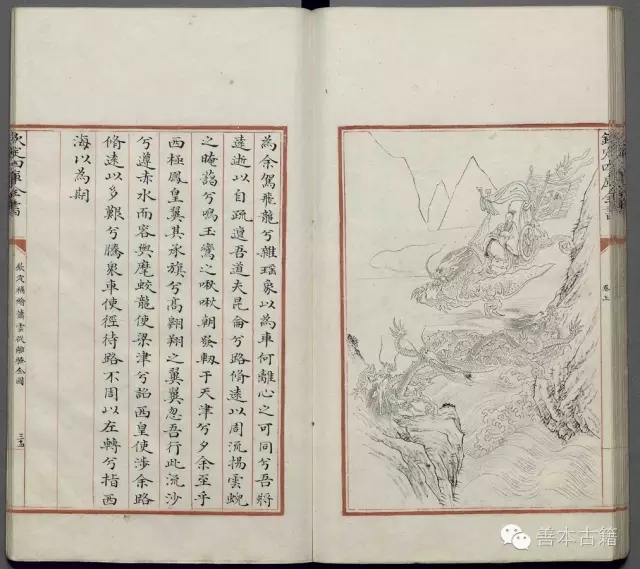 欽定四庫全書
卷上
為余駕飛龍兮雜瑶象以為車何離心之可同兮吾將
逺逝以自疏邅吾道夫昆侖兮路脩逺以周流揚雲蜺
之晻藹兮鳴玉鸞之啾啾朝發軔于天津兮夕余至乎
西極鳳皇翼其承旗兮髙翱翔之翼翼忽吾行此流沙
兮遵赤水而容與麾蛟龍使梁津兮詔西皇使涉余路
脩逺以多艱兮騰衆車使徑待路不周以左轉兮指西
海以為期
欽定四庫全書
欽定補繪蕭雲從離騷全圖
三十五
善本古籍